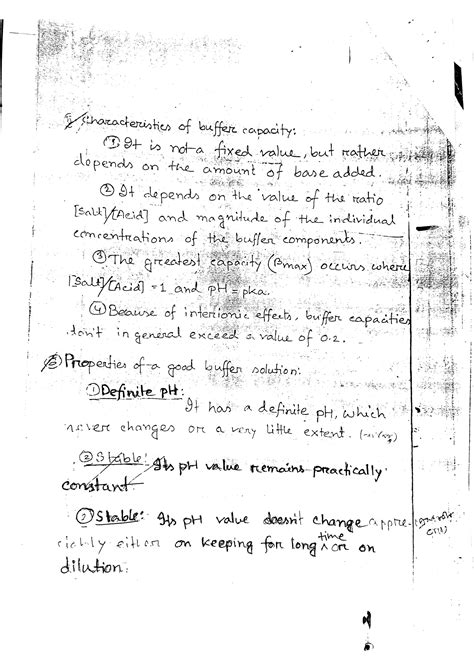 Characteristics of buffer capacity:
① It is not a fixed value, but rather
depends on the amount of base added.
② It depends on the value of the ratio
[Salt]/[Acid] and magnitude of the individual
concentrations of the buffer components.
③ The greatest capacity (βmax) occurs where
[Salt]/[Acid] = 1 and pH = pka.
④ Because of interionic effects, buffer capacities
don't in general exceed a value of 0.2.
Properties of a good buffer solution:
① Definite pH:
It has a definite pH, which
never changes or a very little extent.
② Stable: Its pH value remains practically
constant.
② Stable: Its pH value doesn't change appre-
ciably either on keeping for long time or on
dilution.